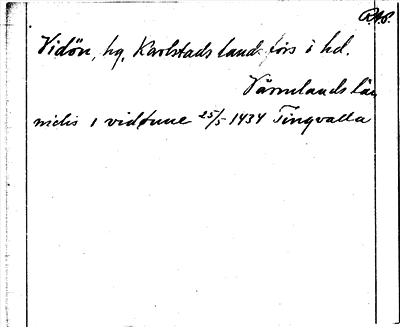 RAP.
Vidön, hg, Karlstads lands förs i hd.
Värmlands Län
nielis i vidøune 25/5 1434 Tingvalla